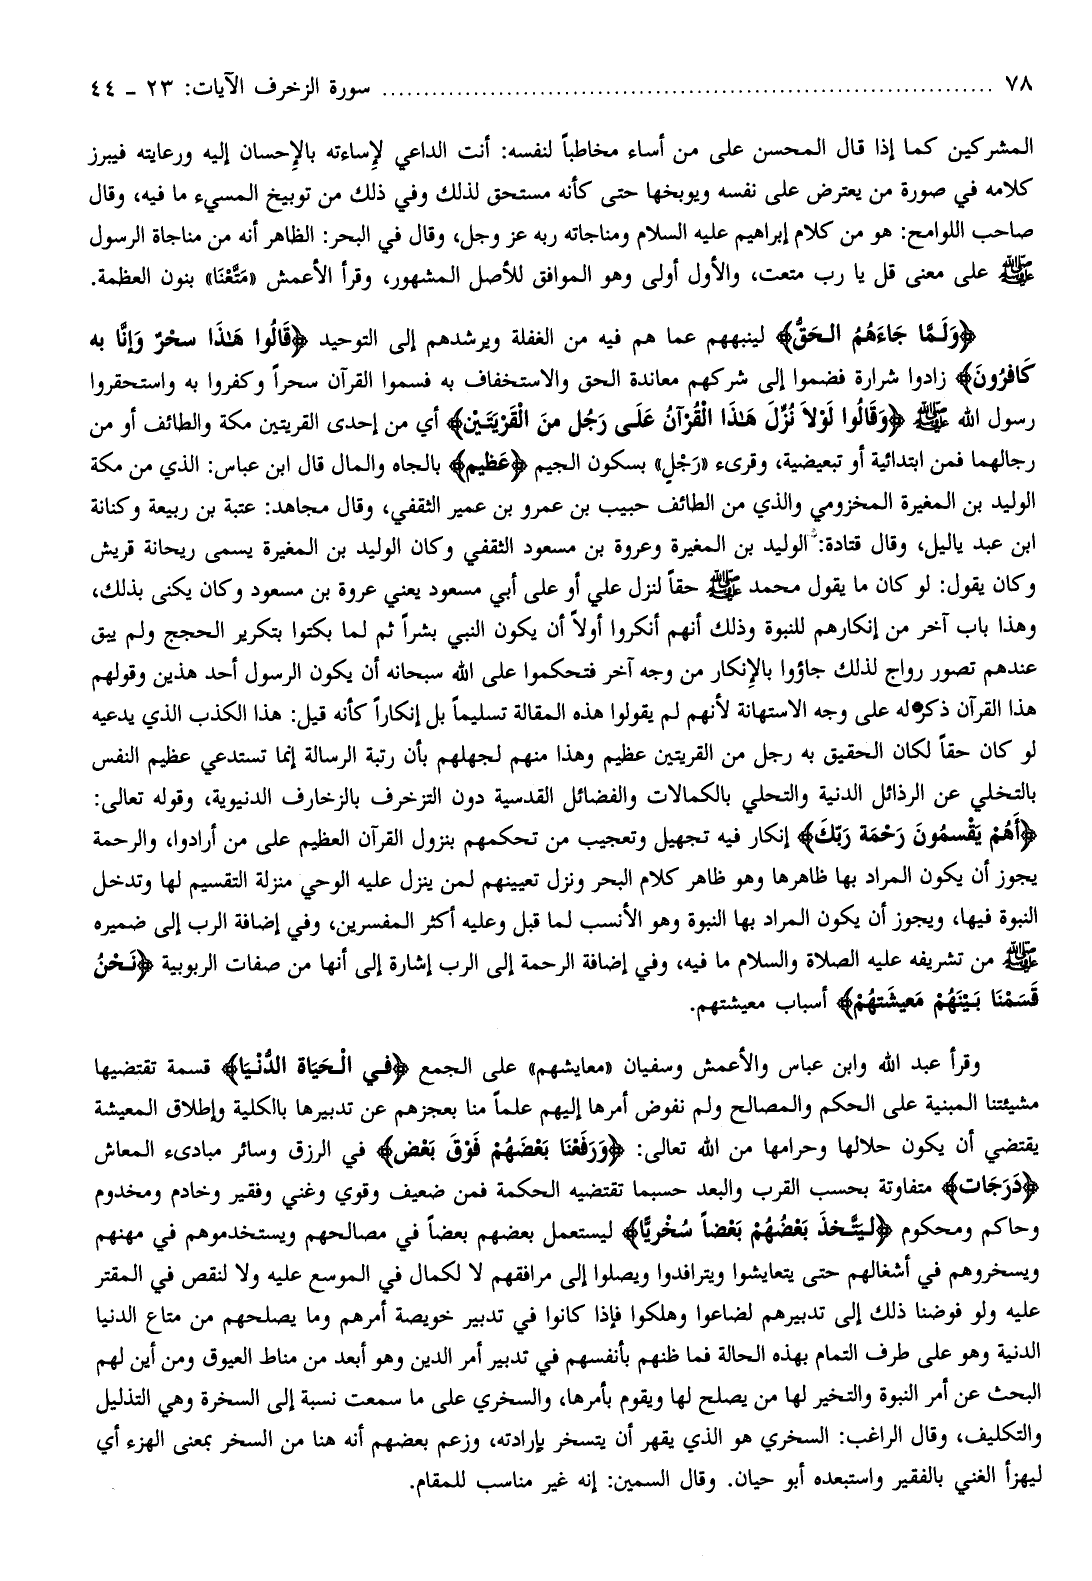 ٧٨ ........................................................................ سورة الزخرف الآيات: ٢٣ ـ ٤٤
المشركين كما إذا قال المحسن على من أساء مخاطباً لنفسه: أنت الداعي لإساءته بالإحسان إليه ورعايته فيبرز
كلامه في صورة من يعترض على نفسه ويوبخها حتى كأنه مستحق لذلك وفي ذلك من توبيخ المسيء ما فيه، وقال
صاحب اللوامح: هو من كلام إبراهيم عليه السلام ومناجاته ربه عز وجل، وقال في البحر: الظاهر أنه من مناجاة الرسول
ﷺ على معنى قل يا رب متعت، والأول أولى وهو الموافق للأصل المشهور، وقرأ الأعمش «مَتَّعْنَا» بنون العظمة.
﴿وَلَمَّا جَاءَهُمُ الحَقُّ﴾ لينبههم عما هم فيه من الغفلة ويرشدهم إلى التوحيد ﴿قَالُوا هَـٰذَا سحْرٌ وَإنَّا به
كَافرُونَ﴾ زادوا شرارة فضموا إلى شركهم معاندة الحق والاستخفاف به فسموا القرآن سحراً وكفروا به واستحقروا
رسول الله ﷺ ﴿وَقَالُوا لَوْلاَ نُزِّلَ هَـٰذَا الْقُرْآنُ عَلَـى رَجُل منَ الْقَرْيَتَيْن﴾ أي من إحدى القريتين مكة والطائف أو من
رجالهما فمن ابتدائية أو تبعيضية، وقرىء «رَجْلٍ» بسكون الجيم ﴿عَظيم﴾ بالجاه والمال قال ابن عباس: الذي من مكة
الوليد بن المغيرة المخزومي والذي من الطائف حبيب بن عمرو بن عمير الثقفي، وقال مجاهد: عتبة بن ربيعة وكنانة
ابن عبد ياليل، وقال قتادة: الوليد بن المغيرة وعروة بن مسعود الثقفي وكان الوليد بن المغيرة يسمى ريحانة قريش
وكان يقول: لو كان ما يقول محمد ﷺ حقاً لنزل علي أو على أبي مسعود يعني عروة بن مسعود وكان يكنى بذلك،
وهذا باب آخر من إنكارهم للنبوة وذلك أنهم أنكروا أولاً أن يكون النبي بشراً ثم لما بكتوا بتكرير الحجج ولم يبق
عندهم تصور رواج لذلك جاؤوا بالإنكار من وجه آخر فتحكموا على الله سبحانه أن يكون الرسول أحد هذين وقولهم
هذا القرآن ذكر له على وجه الاستهانة لأنهم لم يقولوا هذه المقالة تسليماً بل إنكاراً كأنه قيل: هذا الكذب الذي يدعيه
لو كان حقاً لكان الحقيق به رجل من القريتين عظيم وهذا منهم لجهلهم بأن رتبة الرسالة إنما تستدعي عظيم النفس
بالتخلي عن الرذائل الدنية والتحلي بالكمالات والفضائل القدسية دون التزخرف بالزخارف الدنيوية، وقوله تعالى:
﴿أَهُمْ يَقْسمُونَ رَحْمَة رَبّكَ﴾ إنكار فيه تجهيل وتعجيب من تحكمهم بنزول القرآن العظيم على من أرادوا، والرحمة
يجوز أن يكون المراد بها ظاهرها وهو ظاهر كلام البحر ونزل تعيينهم لمن ينزل عليه الوحي منزلة التقسيم لها وتدخل
النبوة فيها، ويجوز أن يكون المراد بها النبوة وهو الأنسب لما قبل وعليه أكثر المفسرين، وفي إضافة الرب إلى ضميره
ﷺ من تشريفه عليه الصلاة والسلام ما فيه، وفي إضافة الرحمة إلى الرب إشارة إلى أنها من صفات الربوبية ﴿نَـحْنُ
قَسَمْنَا بَـيْنَهُمْ مَعيشَتهُمْ﴾ أسباب معيشتهم.
وقرأ عبد الله وابن عباس والأعمش وسفيان «معايشهم» على الجمع ﴿فـي الْـحَيَاة الدُّنْـيَا﴾ قسمة تقتضيها
مشيئتنا المبنية على الحكم والمصالح ولم نفوض أمرها إليهم علماً منا بعجزهم عن تدبيرها بالكلية وإطلاق المعيشة
يقتضي أن يكون حلالها وحرامها من الله تعالى: ﴿وَرَفَعْنَا بَعْضَهُمْ فَوْقَ بَعْض﴾ في الرزق وسائر مبادىء المعاش
﴿دَرَجَات﴾ متفاوتة بحسب القرب والبعد حسبما تقتضيه الحكمة فمن ضعيف وقوي وغني وفقير وخادم ومخدوم
وحاكم ومحكوم ﴿ليَتَّـخذَ بَعْضُهُمْ بَعْضاً سُخْريًّا﴾ ليستعمل بعضهم بعضاً في مصالحهم ويستخدموهم في مهنهم
ويسخروهم في أشغالهم حتى يتعايشوا ويترافدوا ويصلوا إلى مرافقهم لا لكمال في الموسع عليه ولا لنقص في المقتر
عليه ولو فوضنا ذلك إلى تدبيرهم لضاعوا وهلكوا فإذا كانوا في تدبير خويصة أمرهم وما يصلحهم من متاع الدنيا
الدنية وهو على طرف التمام بهذه الحالة فما ظنهم بأنفسهم في تدبير أمر الدين وهو أبعد من مناط العيوق ومن أين لهم
البحث عن أمر النبوة والتخير لها من يصلح لها ويقوم بأمرها، والسخري على ما سمعت نسبة إلى السخرة وهي التذليل
والتكليف، وقال الراغب: السخري هو الذي يقهر أن يتسخر بإرادته، وزعم بعضهم أنه هنا من السخر بمعنى الهزء أي
ليهزأ الغني بالفقير واستبعده أبو حيان. وقال السمين: إنه غير مناسب للمقام.